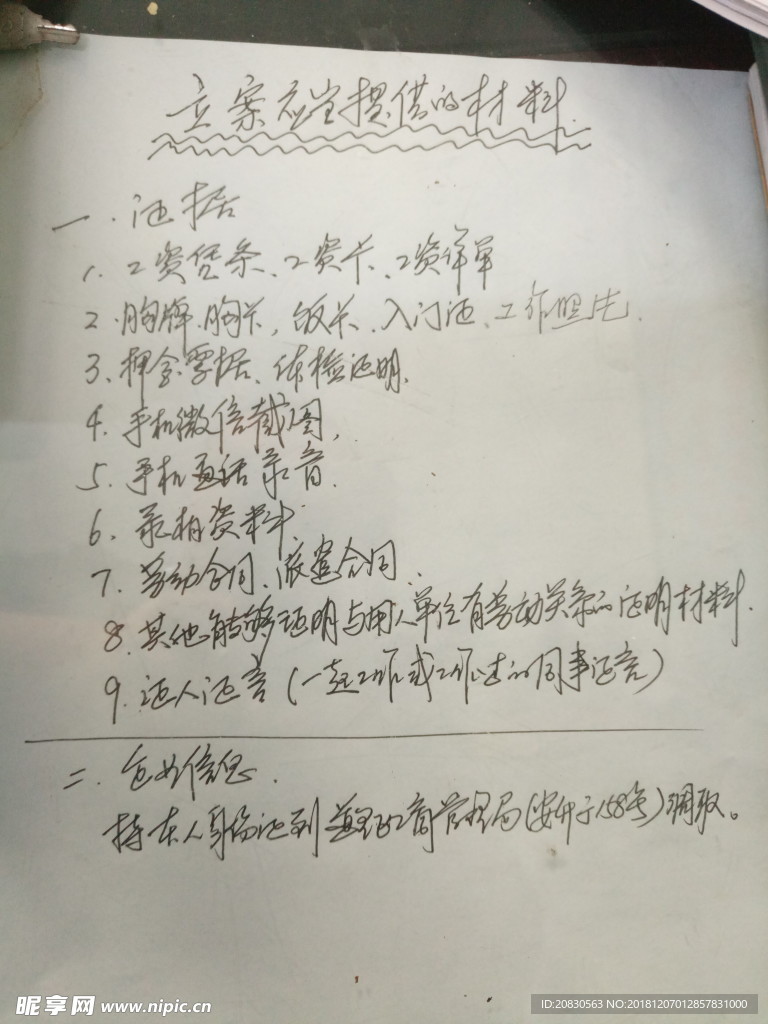 立案应当提供的材料
一.证据
1.工资凭条、工资卡、工资详单
2.胸牌.胸卡,饭卡、入门证、工作照片.
3、押金票据、体检证明.
4.手机微信截图,
5.手机通话录音.
6.录相资料
7.劳动合同、派遣合同.
8.其他能够证明与用人单位有劳动关系的证明材料.
9.证人证言(一起工作或工作过的同事证言)
二.企业信息.
持本人身份证到 工商管理局(安升于158号)调取。
昵享网 www.nipic.cn
ID:20830563 NO:20181207012857831000